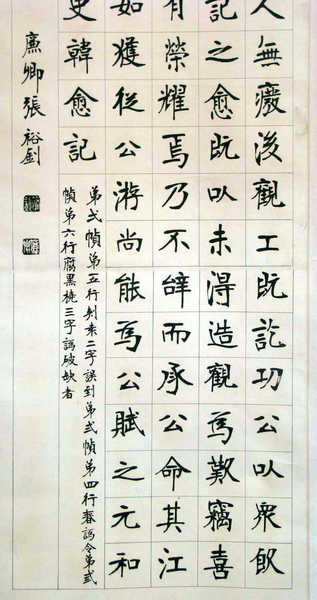 人無癈後觀工既訖功公以眾飲
記之愈既以未得造觀為歎竊喜
有榮耀焉乃不辭而承公命其江
如獲從公游尚能為公賦之元和
史韓愈記
弟弍幀弟五行二字誤到弟弍幀弟四行春譌令弟弍
幀弟六行腐黑橈三字譌破缺者
廉卿張裕釗